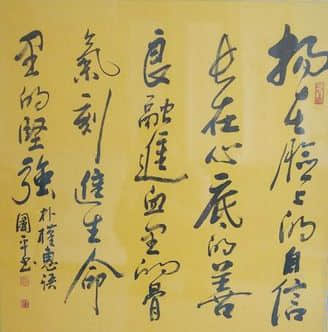 揚在臉上的自信
长在心底的善
良融進血里的骨
氣刻進生命
里的堅强
朴槿惠语
國平书